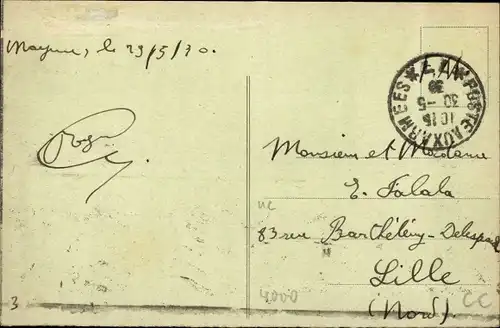 Mayence, le 23/5/30.
Roger
POSTE AUX ARMEES
10 15
30 -5
30
Monsieur et Madame
E. Falala
83 rue Barthélémy-Delespaul
Lille
(Nord).
4000
CC
3